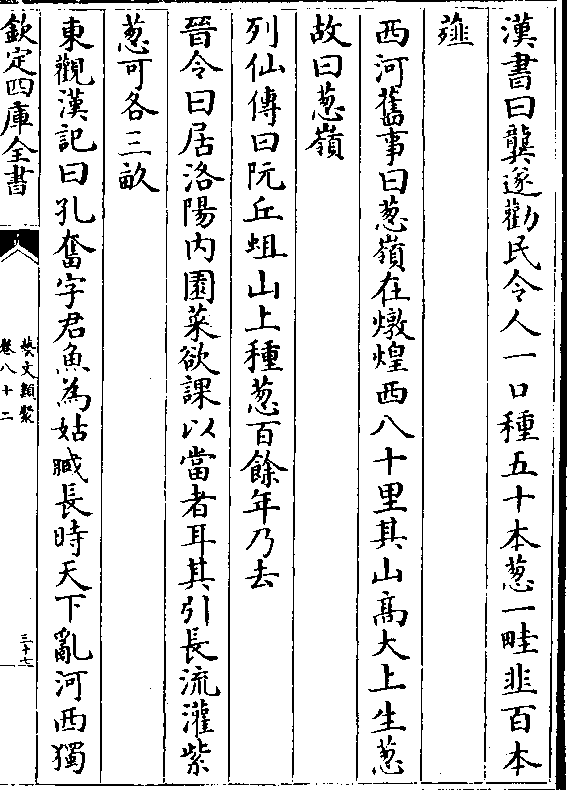 漢書曰龔遂勸民令人一口種五十本葱一畦韭百本
薤
西河舊事曰葱嶺在燉煌西八十里其山高大上生葱
故曰葱嶺
列仙傳曰阮丘蛆山上種葱百餘年乃去
晉令曰居洛陽内園菜欲課以當者耳其引長流灌紫
葱可各三畝
東觀漢記曰孔奮字君魚為姑臧長時天下亂河西獨
欽定四庫全書
藝文類聚
卷八十二
三十七